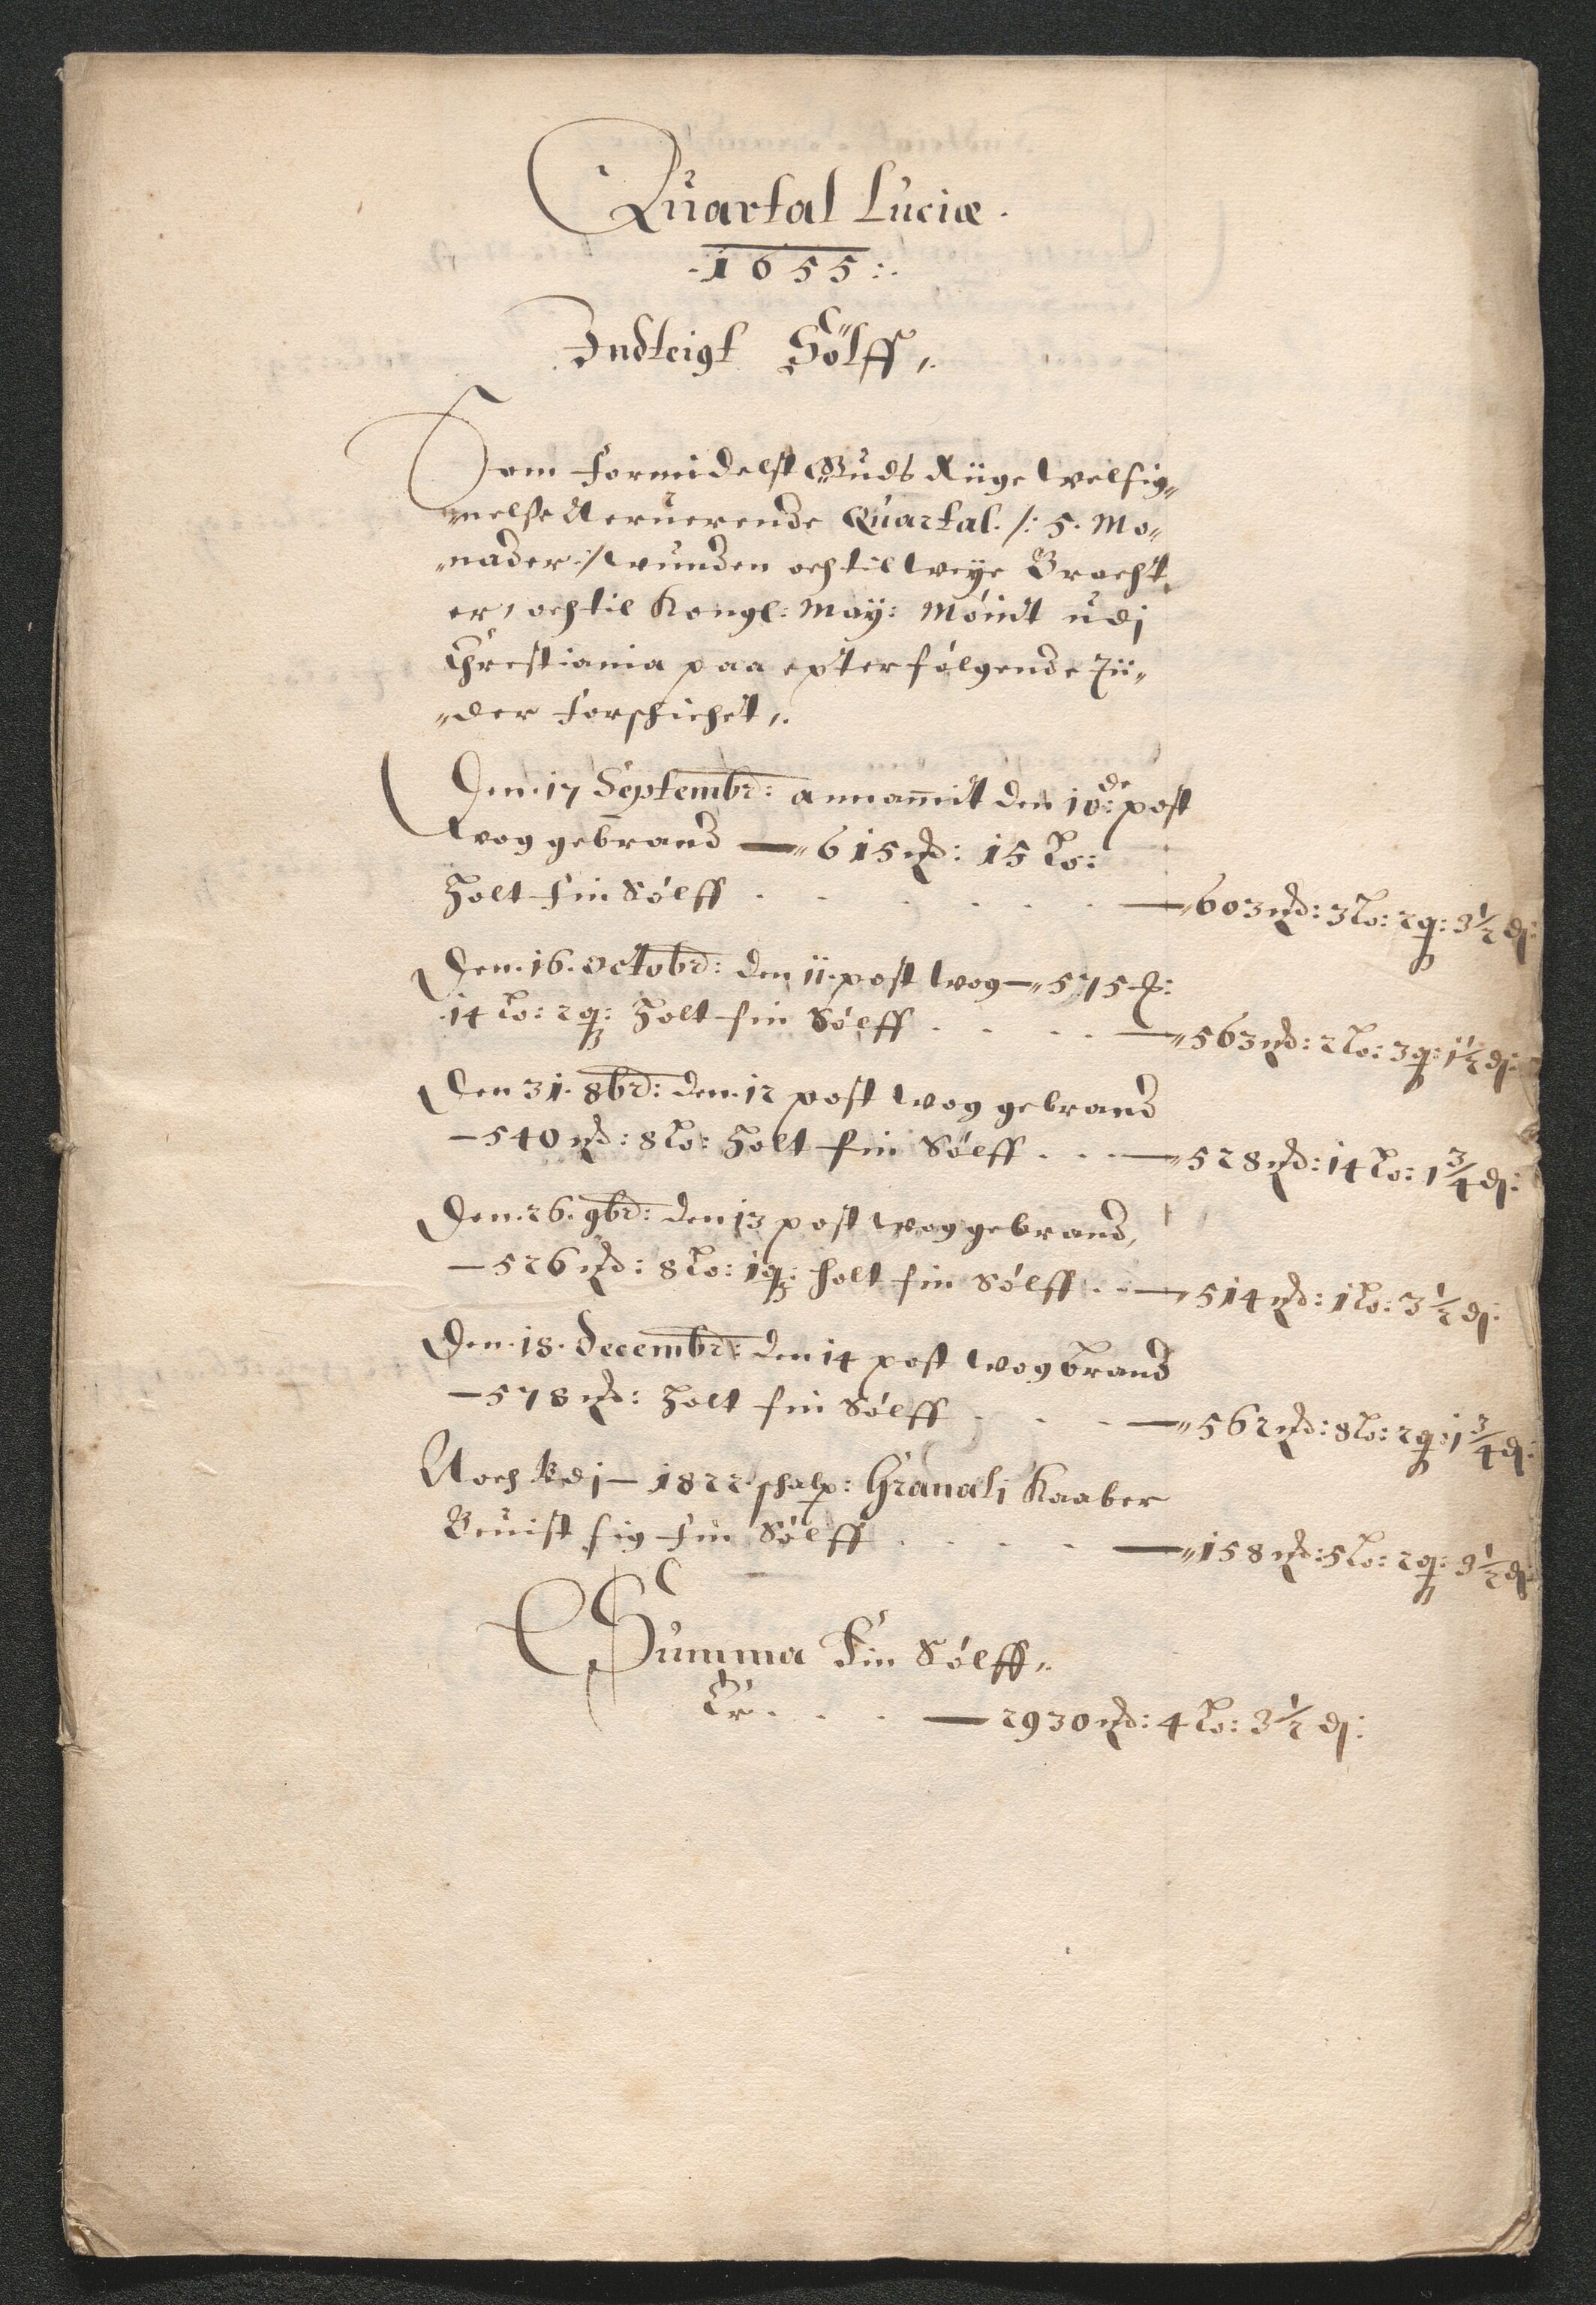 Quartal Luciæ.
1655:
Indteigt Sölff,.
Som formidelst Guds Riige Velsig„
„nelse Neruerende Quartal. /: 5. Mo„
„nader :/ Vunden och til Veye Bracht
er, och til Kongl: May: Möndt udj
Christiania paa epterfölgende Tii„
„der forschichet,.
Den 17 Septembr: annammit den 10de: post
Wog gebrand — „ 615 md: 15 lo:
Holt fin Sölff . . . . . . — „ 603 md: 3 lo: 2 q: 3 1/2 d:
Den 16. Octobr: den 11. post Wog — „ 575 m:
14 lo: 2 q: Holt fin Sölff . . . . — „ 563 md: 2 lo: 3 q: 1 1/2 d:
Den 31. 8br: den 12 post Wog gebrand
— 540 md: 8 lo: Holt fin Sölff . . . — „ 528 md: 14 lo: 1 3/4 d:
Den 26. 9br: den 13 post Wog gebrand,
— 526 md: 8 lo: 1 q: holt fin Sölff . . — „ 514 md: 1 lo: 3 1/2 d:
Den 18. Decembr: den 14 post Wog brand
— 578 md: Holt fin Sölff . . . — „ 562 md: 8 lo: 2 q: 1 3/4 d:
Noch udj — 1822 schalp: Granali Kaaber
Beuist sig fin Sölff . . . . . — „ 158 md: 5 lo: 2 q: 3 1/2 d:
Summa Fin Sölff,.
Er . . . . — 2930 md: 4 lo: 3 1/2 d: